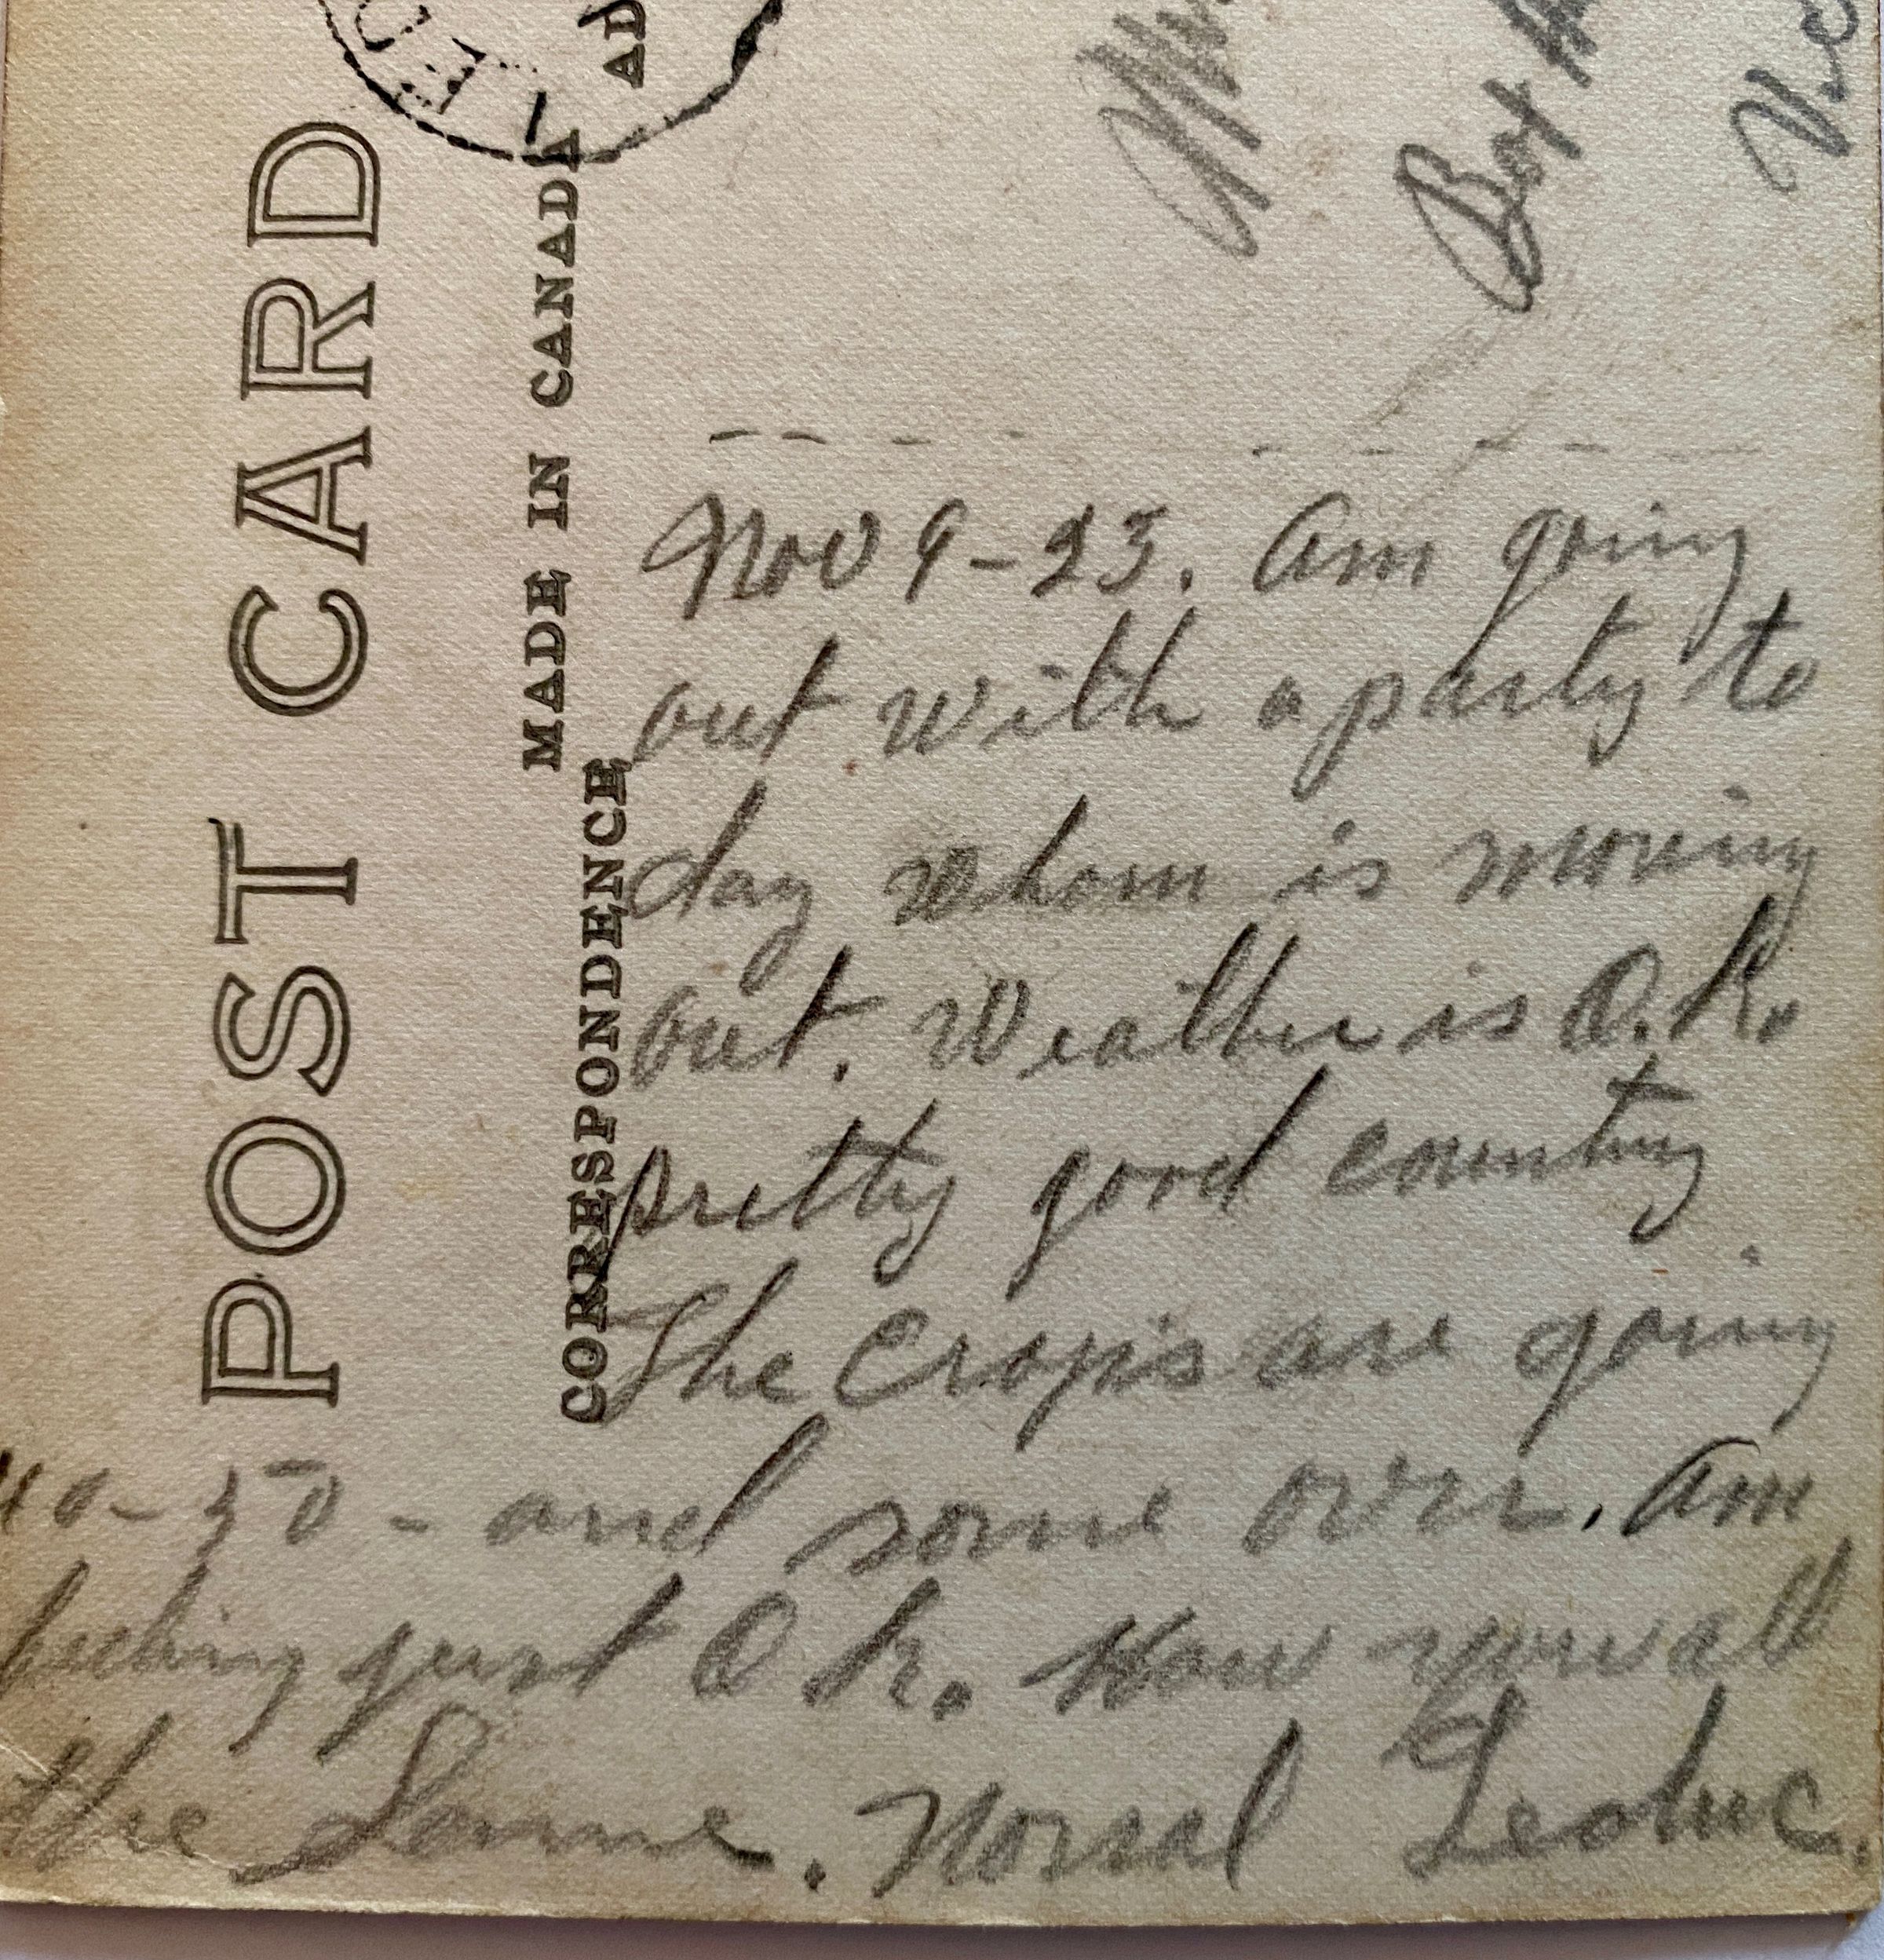 POST CARD
MADE IN CANADA
CORRESPONDENCE
AD
Box
Nov 9-23. Am going
out with a party to
day whom is moving
out. Weather is O.K.
pretty good country
The Crops are going
40-50 - and some over. Am
feeling just O.K. How you all
the Same. Norval Leduc.